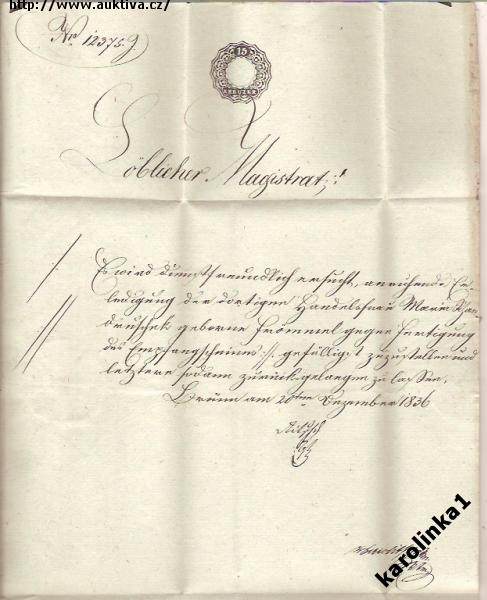 http://www.auktiva.cz/
Nr 12375.
15
KREUZER
Löblicher Magistrat!
Es wird dienstfreundlich ersucht, anruhende Er-
ledigung der dortigen Handelsfrau Marie
geborne Frömmel gegen Fertigung
des Empfangscheines ·/. gefälligst zuzustellen und
letztere sodann zurückgelangen zu lassen.
Brünn am 20ten Dezember 1836
karolinka1